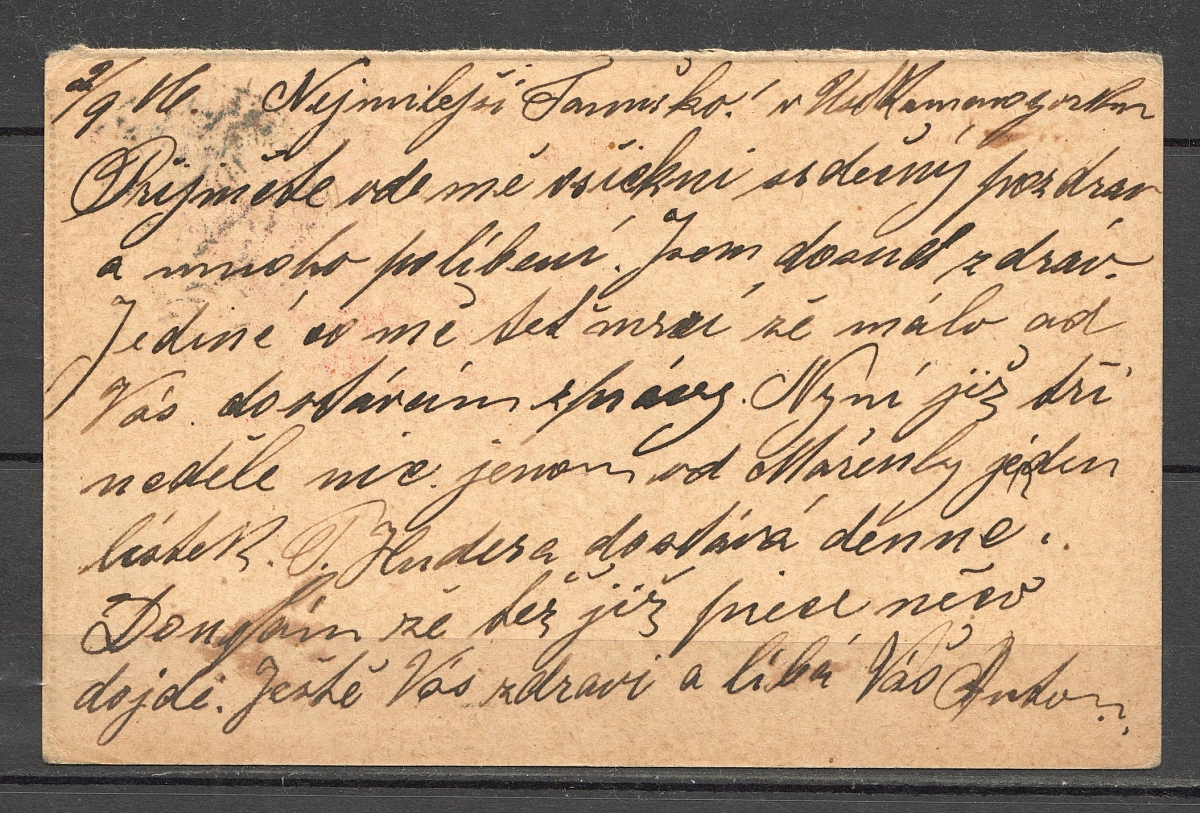 2/9 16. Nejmilejší Tomíško! v Ustkamenogorsku
Přijměte ode mě všickni srdečný pozdrav
a mnoho políbení. Jsem dosud zdráv.
Jediné co mě teť mrzí že málo od
Vás dostávám zprávy. Nyní již tři
neděle nic jenom od Mařenky jeden
lístek. P. Hudera dostává denně.
Doufám že též již přece něco
dojde. Ještě Vás zdraví a líbá Váš Anton.